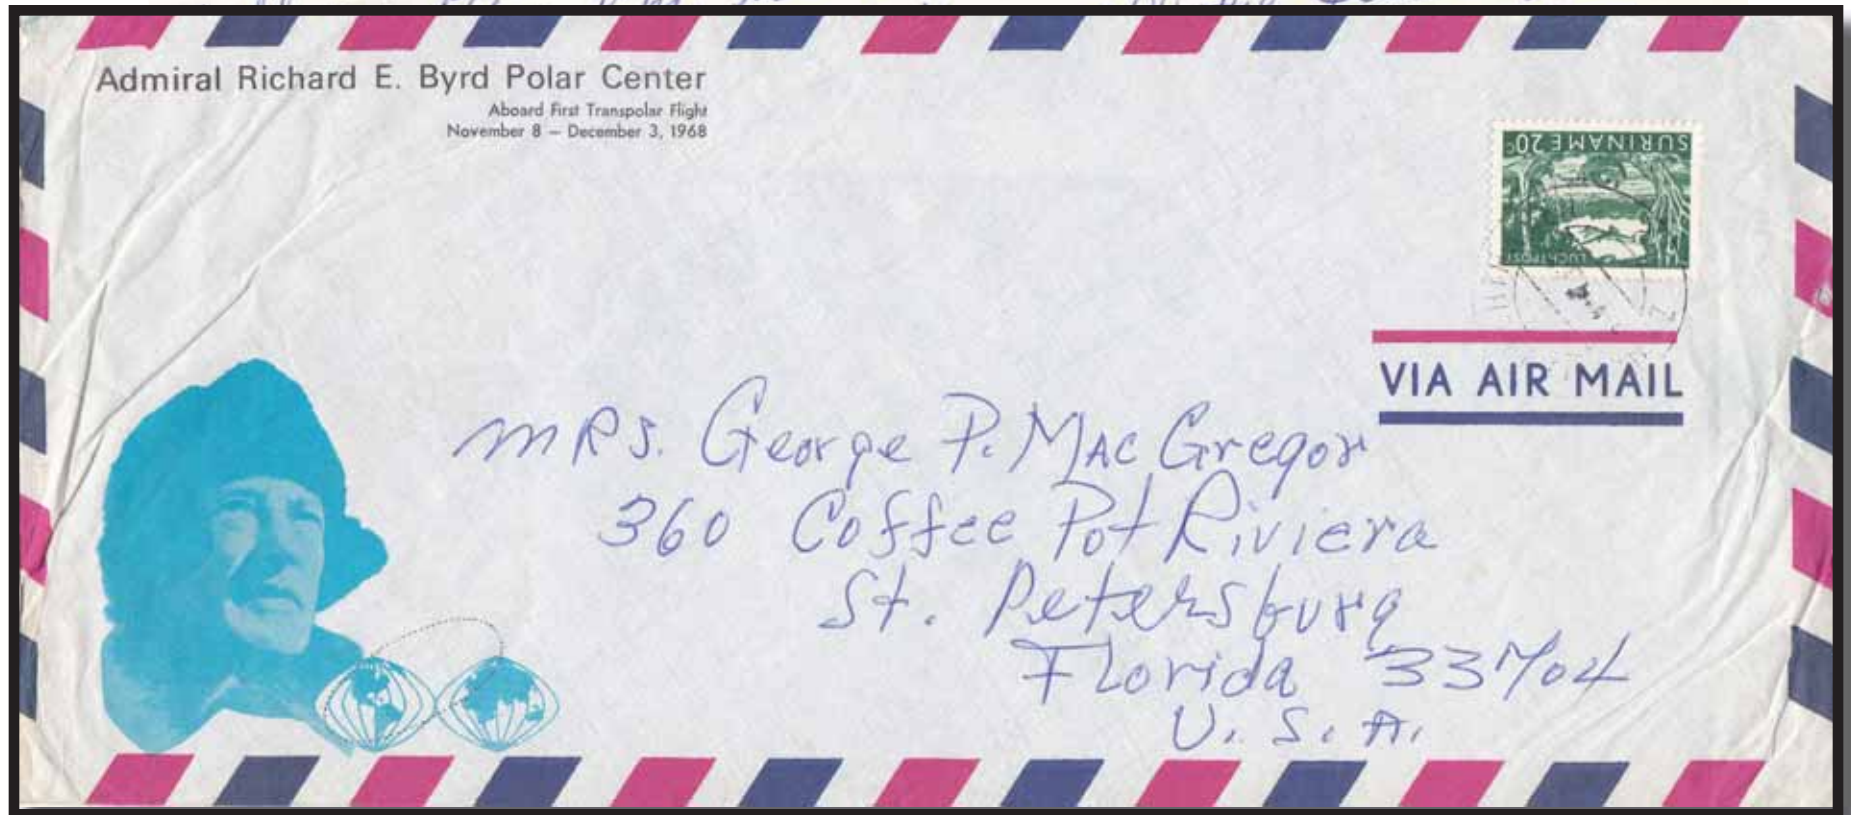 Admiral Richard E. Byrd Polar Center
Aboard First Transpolar Flight
November 8 – December 3, 1968
SURINAME 20c
LUCHTPOST
VIA AIR MAIL
MRS. George P. MAC Gregor
360 Coffee Pot Riviera
St. Petersburg
Florida 33704
U. S. A.